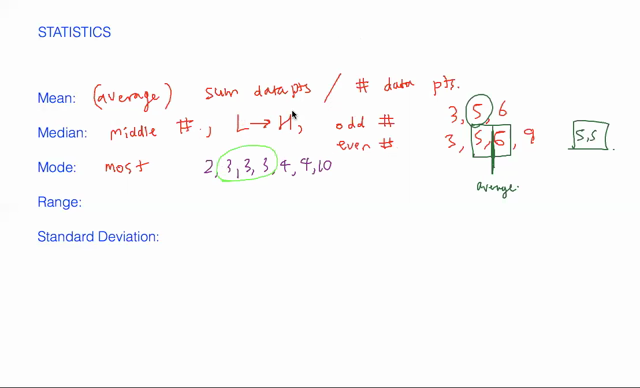 STATISTICS
Mean: (average) sum data pts / # data pts.
3, 5, 6
Median: middle #., L → H, odd #
even # 3, 5, 6, 9 5,5
Mode: most 2, 3, 3, 3, 4, 4, 10
average.
Range:
Standard Deviation: